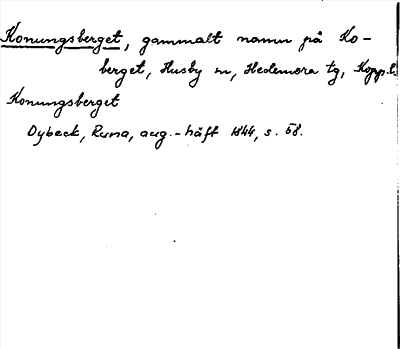 Konungsberget, gammalt namn på Ko-
berget, Husby sn, Hedemora tg, Kopp. l.
Konungsberget
Dybeck, Runa, aug.-häft 1844, s. 58.